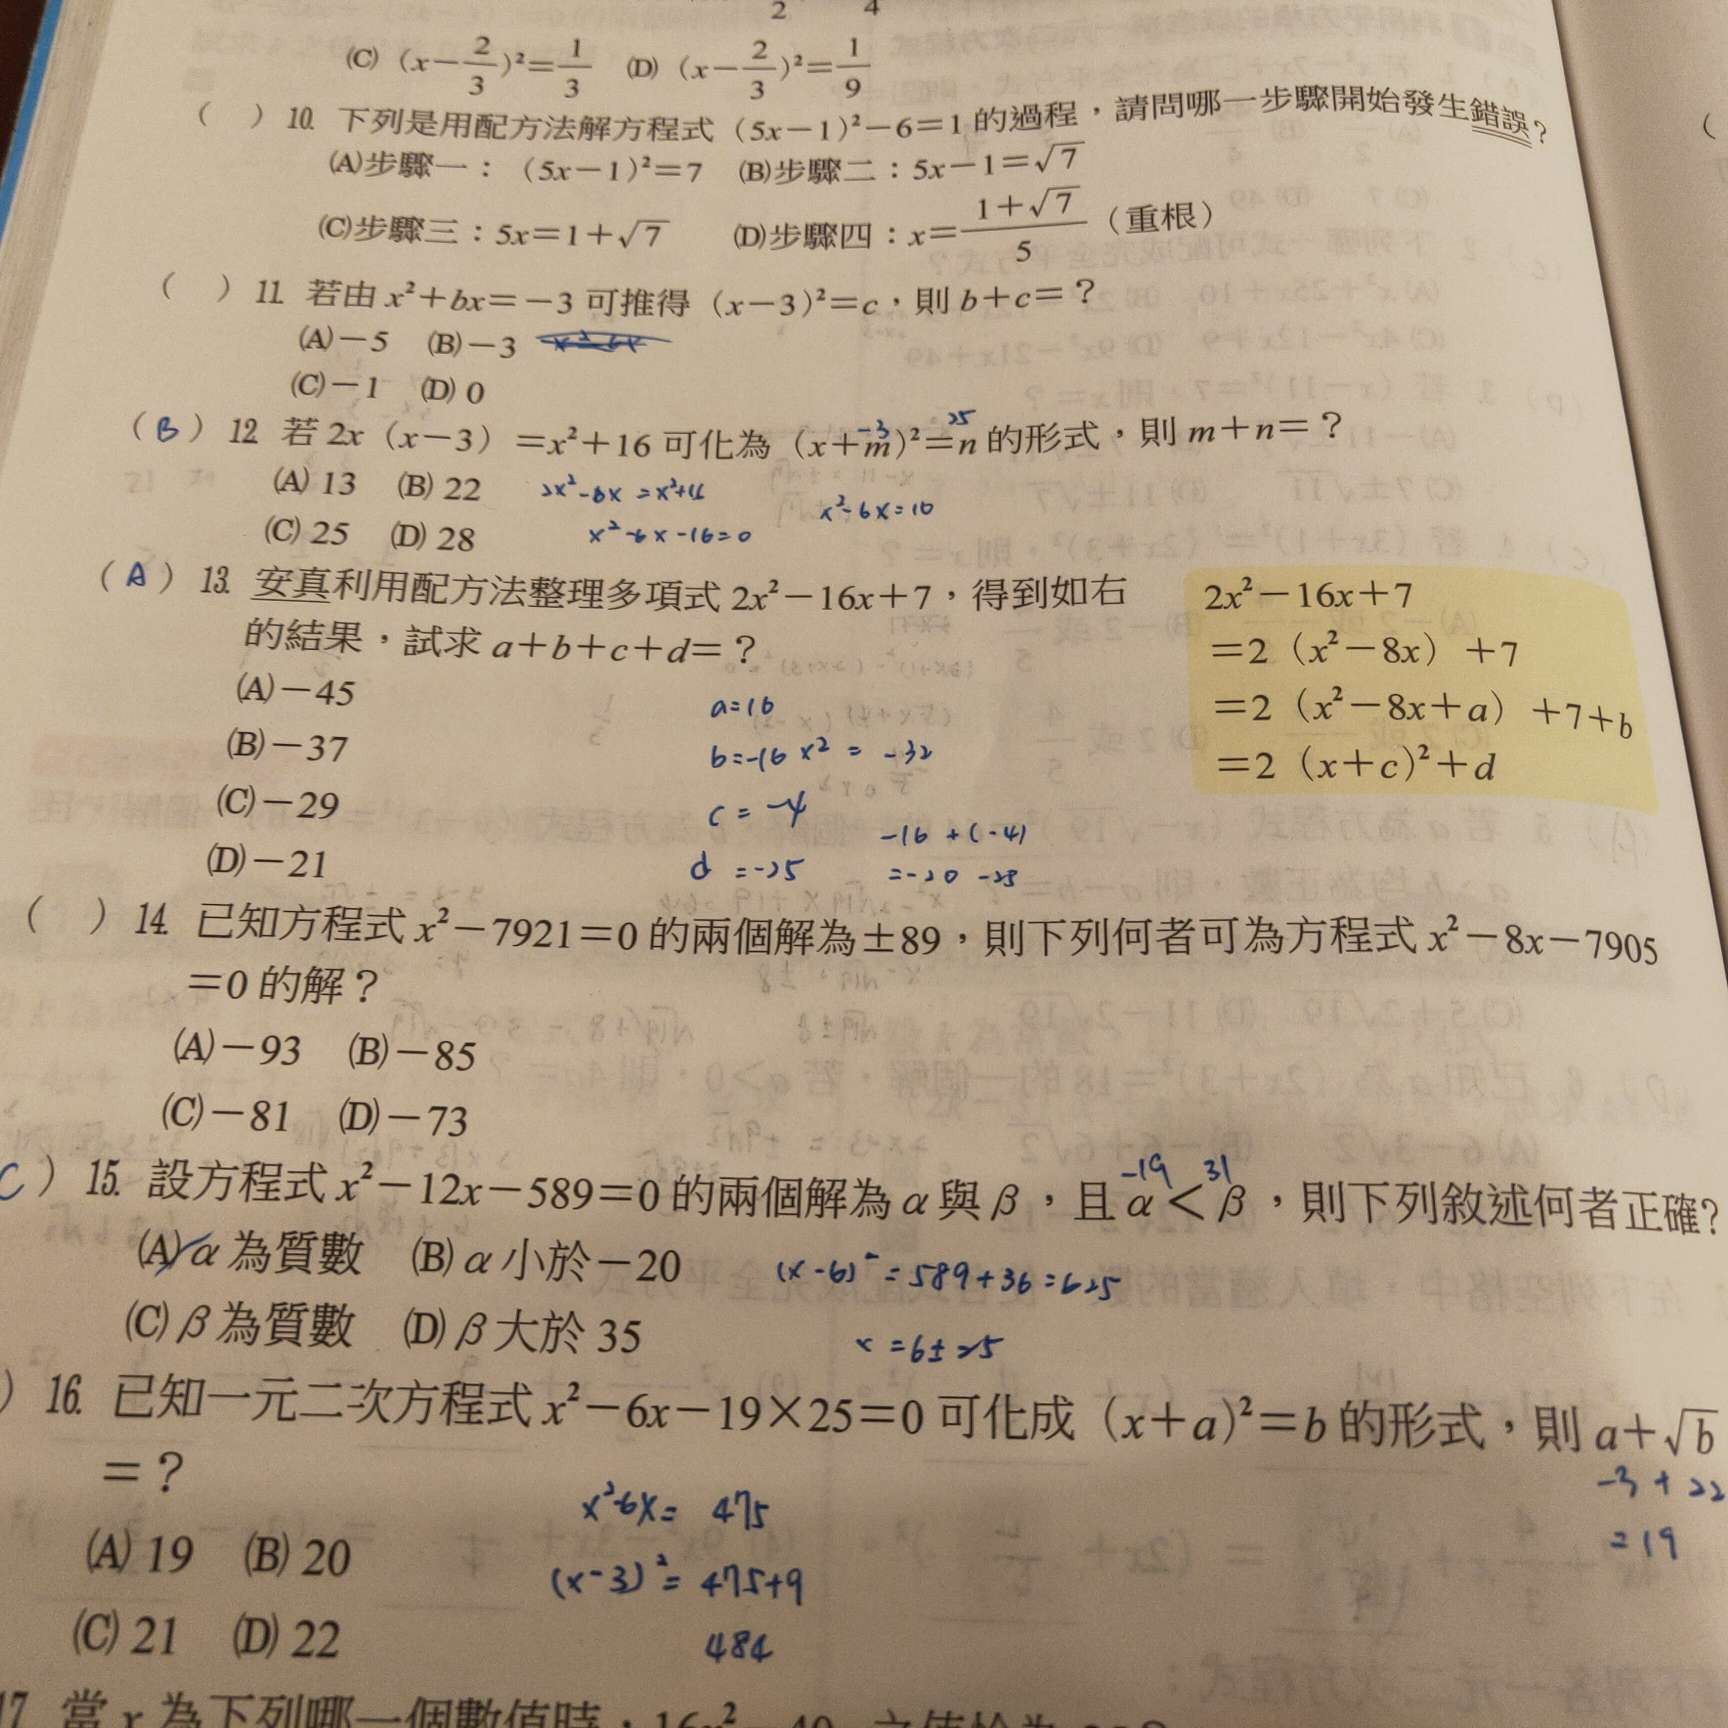 (C) (x−2/3)²=1/3 (D) (x−2/3)²=1/9
( ) 10. 下列是用配方法解方程式 (5x−1)²−6=1 的過程，請問哪一步驟開始發生錯誤？
(A)步驟一：(5x−1)²=7 (B)步驟二：5x−1=√7
(C)步驟三：5x=1+√7 (D)步驟四：x=(1+√7)/5（重根）
( ) 11. 若由 x²+bx=−3 可推得 (x−3)²=c，則 b+c=？
(A)−5 (B)−3
(C)−1 (D) 0
−3 25
(B) 12. 若 2x (x−3) =x²+16 可化為 (x+m)²=n 的形式，則 m+n=？
(A) 13 (B) 22 2x²−6x=x²+16 x²−6x=16
(C) 25 (D) 28 x²−6x−16=0
(A) 13. 安真利用配方法整理多項式 2x²−16x+7，得到如右
的結果，試求 a+b+c+d=？
2x²−16x+7
=2 (x²−8x) +7
=2 (x²−8x+a) +7+b
=2 (x+c)²+d
(A)−45 a=16
(B)−37 b=−16×2 = −32
(C)−29 c = −4 −16 + (−4)
(D)−21 d =−25 =−20 −25
( ) 14. 已知方程式 x²−7921=0 的兩個解為±89，則下列何者可為方程式 x²−8x−7905
=0 的解？
(A)−93 (B)−85
(C)−81 (D)−73
−19 31
C) 15. 設方程式 x²−12x−589=0 的兩個解為 α 與 β，且 α＜β，則下列敘述何者正確？
(A) α 為質數 (B) α 小於−20 (x−6)² = 589+36=625
(C) β 為質數 (D) β 大於 35 x =6±25
) 16. 已知一元二次方程式 x²−6x−19×25=0 可化成 (x+a)²=b 的形式，則 a+√b
=？ −3 + 22
x²−6x= 475 =19
(A) 19 (B) 20 (x−3)² = 475+9
(C) 21 (D) 22 484
17. 當 x 為下列哪一個數值時，